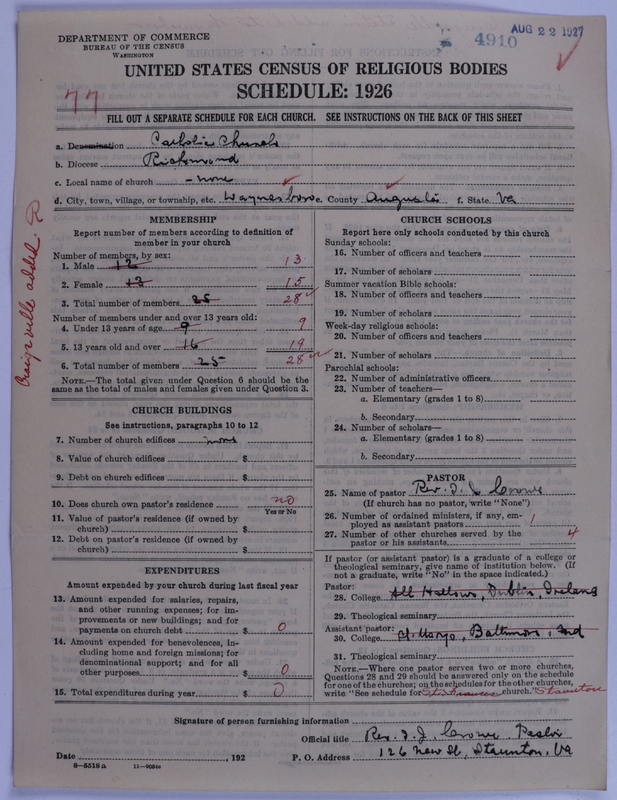 DEPARTMENT OF COMMERCE
BUREAU OF THE CENSUS
WASHINGTON
4910
AUG 22 1927
UNITED STATES CENSUS OF RELIGIOUS BODIES
SCHEDULE: 1926
77
FILL OUT A SEPARATE SCHEDULE FOR EACH CHURCH. SEE INSTRUCTIONS ON THE BACK OF THIS SHEET
a. Denomination Catholic Church
b. Diocese Richmond
c. Local name of church - none
d. City, town, village, or township, etc. Waynesboro e. County Augusta f. State Va
Craigsville added. R
MEMBERSHIP
Report number of members according to definition of member in your church
Number of members, by sex:
1. Male 12 13
2. Female 13 15
3. Total number of members 25 28
Number of members under and over 13 years old:
4. Under 13 years of age 9 9
5. 13 years old and over 16 19
6. Total number of members 25 28
NOTE.—The total given under Question 6 should be the same as the total of males and females given under Question 3.
CHURCH BUILDINGS
See instructions, paragraphs 10 to 12
7. Number of church edifices none
8. Value of church edifices $
9. Debt on church edifices $
10. Does church own pastor's residence no
Yes or No
11. Value of pastor's residence (if owned by church) $
12. Debt on pastor's residence (if owned by church) $
EXPENDITURES
Amount expended by your church during last fiscal year
13. Amount expended for salaries, repairs, and other running expenses; for improvements or new buildings; and for payments on church debt $ 0
14. Amount expended for benevolences, including home and foreign missions; for denominational support; and for all other purposes $ 0
15. Total expenditures during year $ 0
CHURCH SCHOOLS
Report here only schools conducted by this church
Sunday schools:
16. Number of officers and teachers
17. Number of scholars
Summer vacation Bible schools:
18. Number of officers and teachers
19. Number of scholars
Week-day religious schools:
20. Number of officers and teachers
21. Number of scholars
Parochial schools:
22. Number of administrative officers
23. Number of teachers—
a. Elementary (grades 1 to 8)
b. Secondary
24. Number of scholars—
a. Elementary (grades 1 to 8)
b. Secondary
PASTOR
25. Name of pastor Rev. T. J. Crowe
(If church has no pastor, write "None")
26. Number of ordained ministers, if any, employed as assistant pastors 1
27. Number of other churches served by the pastor or his assistants 4
If pastor (or assistant pastor) is a graduate of a college or theological seminary, give name of institution below. (If not a graduate, write "No" in the space indicated.)
Pastor:
28. College All Hallows, Dublin, Ireland
29. Theological seminary
Assistant pastor:
30. College St. Marys, Baltimore, Md
31. Theological seminary
NOTE.—Where one pastor serves two or more churches, Questions 28 and 29 should be answered only on the schedule for one of the churches; on the schedules for the other churches, write "See schedule for St. Francis church." Staunton
Signature of person furnishing information
Official title Rev. T. J. Crowe Pastor
Date , 192 P. O. Address 126 New St, Staunton, Va
8—5518a 11—9054a